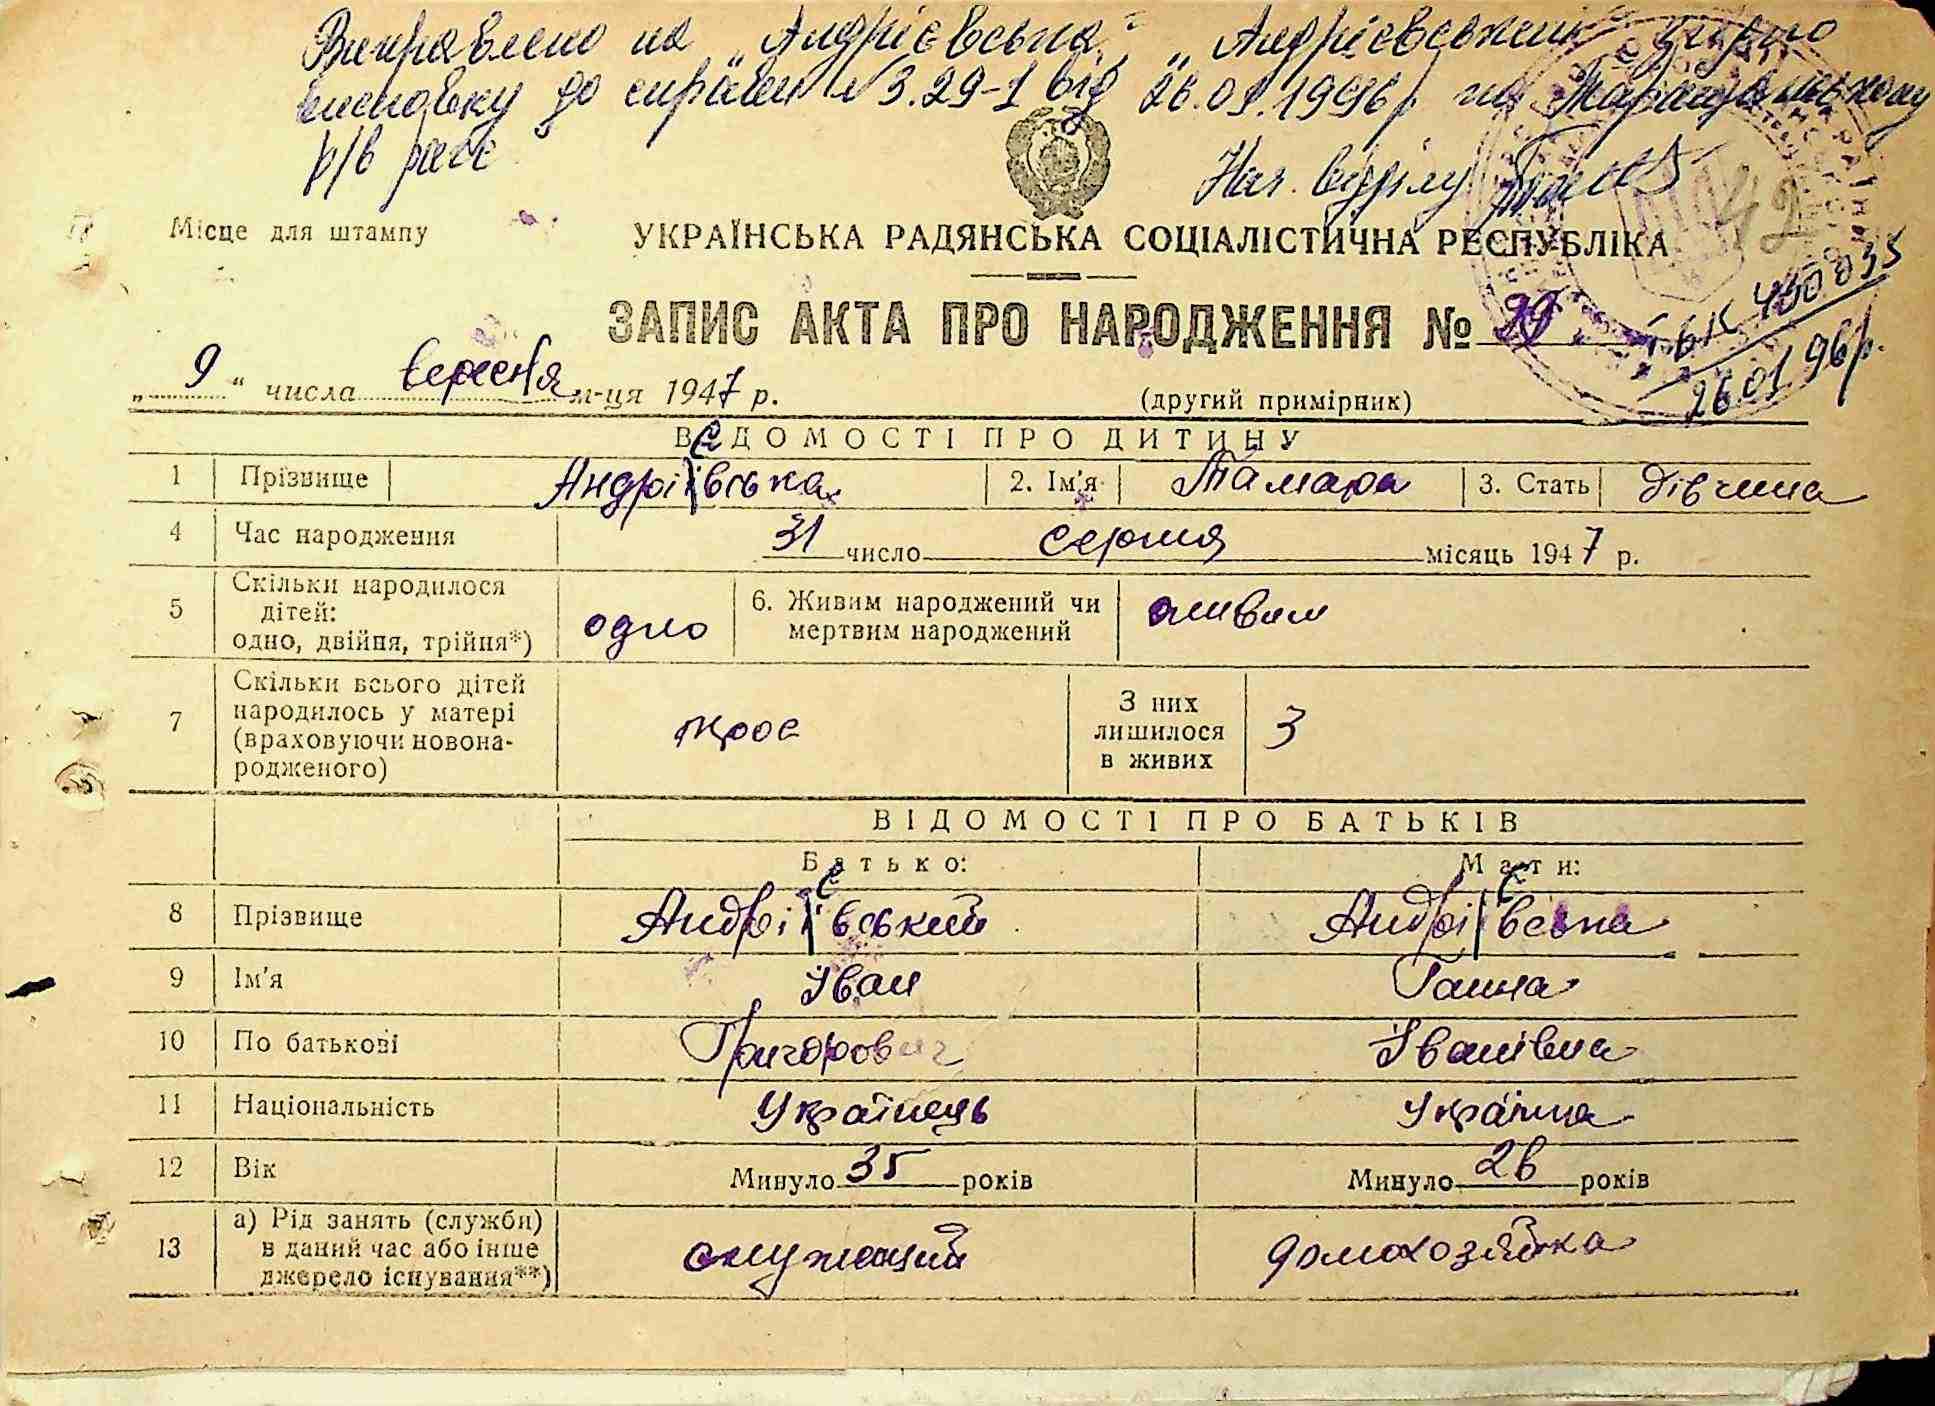 Виправлено на „Андрієвська" „Андрієвський" згідно
висновку до справи №3.29-1 від 26.01.1996р по Таращанському
р/в рагс
Нач. відділу
42
Місце для штампу
УКРАЇНСЬКА РАДЯНСЬКА СОЦІАЛІСТИЧНА РЕСПУБЛІКА
ЗАПИС АКТА ПРО НАРОДЖЕННЯ № 39
26.01 96р.
„ 9 " числа вересня м-ця 1947 р.
(другий примірник)
ВІДОМОСТІ ПРО ДИТИНУ
1 Прізвище Андрієвська 2. Ім'я Тамара 3. Стать дівчина
4 Час народження 31 число серпня місяць 1947 р.
5 Скільки народилося
дітей:
одно, двійня, трійня*) одно 6. Живим народжений чи
мертвим народжений живим
7 Скільки всього дітей
народилось у матері
(враховуючи новона-
родженого) троє З них
лишилося
в живих 3
ВІДОМОСТІ ПРО БАТЬКІВ
Батько: Мати:
8 Прізвище Андрієвський Андрієвська
9 Ім'я Іван Ганна
10 По батькові Григорович Іванівна
11 Національність Українець Українка
12 Вік Минуло 35 років Минуло 26 років
13 а) Рід занять (служби)
в даний час або інше
джерело існування**) служащий домохозяйка